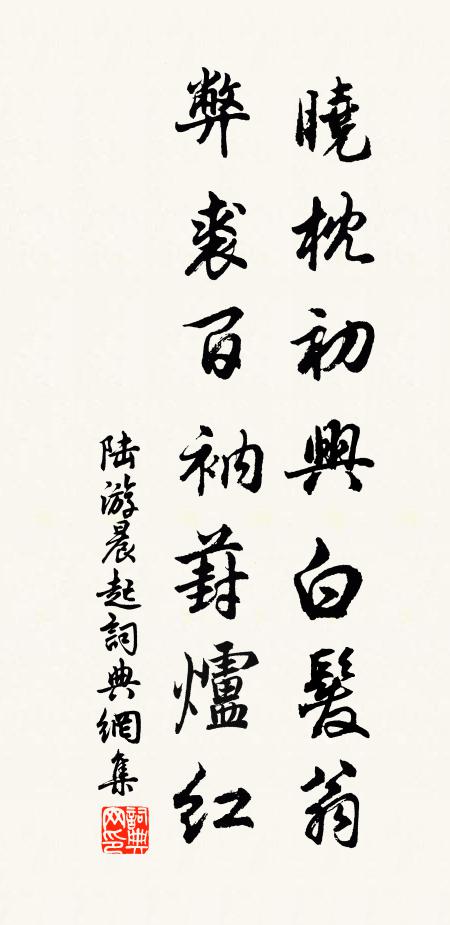 曉枕初興白髮翁
弊裘百衲對爐紅
陸游晨起詞典網集
詞典网印